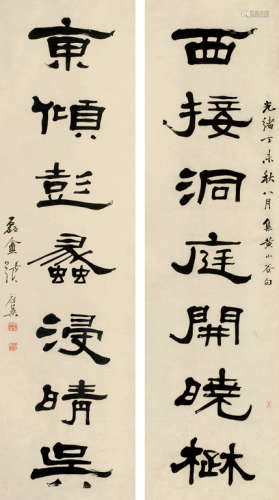 西接洞庭開曉
光緒丁未秋八月集黃山谷句
東傾彭蠡浸晴吳
磊盦